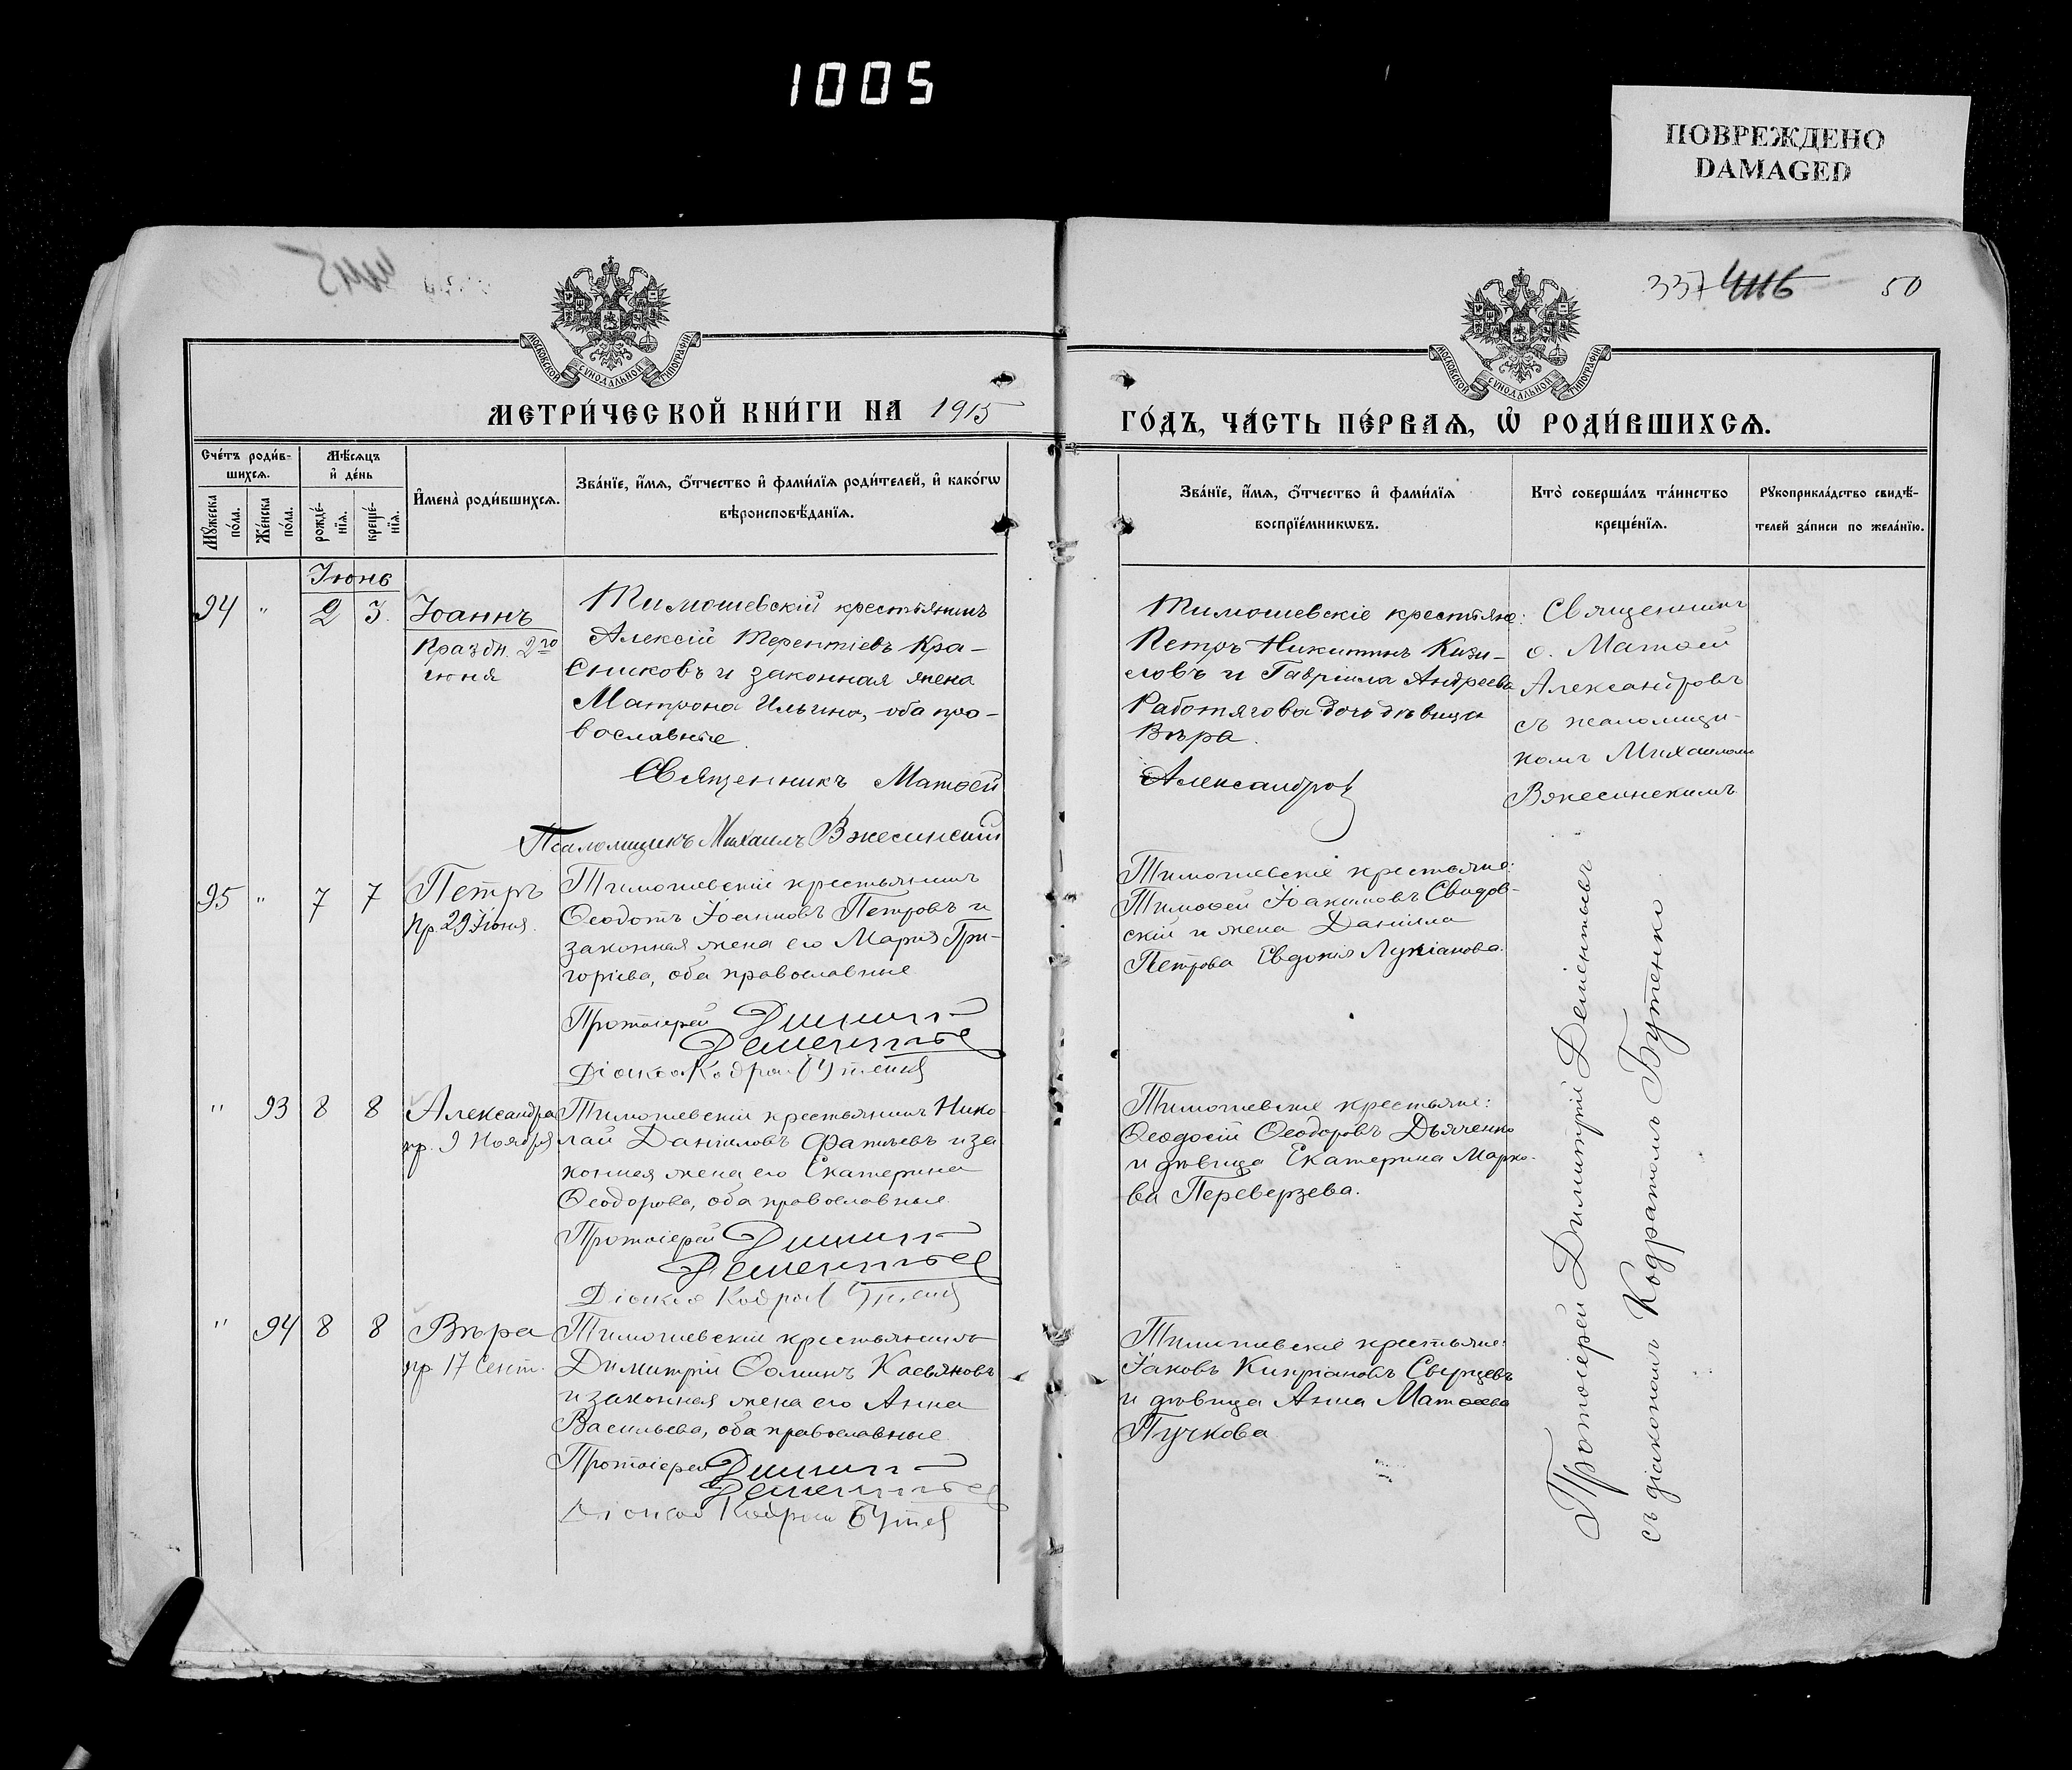 1005
ПОВРЕЖДЕНО
DAMAGED
337 4116 50
МОСКОВСКОЙ СУНОДАЛЬНОЙ ТИПОГРАФІИ
МОСКОВСКОЙ СУНОДАЛЬНОЙ ТИПОГРАФІИ
МЕТРИ́ЧЕСКОЙ КНИ́ГИ НА 1915
ГО́ДЪ, ЧА́СТЬ ПЕ́РВАѦ, Ѡ҆ РОДИ́ВШИХСѦ.
Сче́тъ роди́в-
шихсѧ.
Мꙋ́жеска
по́ла.
Же́нска
по́ла.
Мѣ́сѧцъ
и҆ де́нь
рожде́-
нїѧ.
креще́-
нїѧ.
И҆мена̀ роди́вшихсѧ.
Зва́нїе, и҆́мѧ, ѻ҆́тчество и҆ фами́лїѧ роди́телей, и҆ како́гѡ
вѣроисповѣ́данїѧ.
Зва́нїе, и҆́мѧ, ѻ҆́тчество и҆ фами́лїѧ
воспрїе́мникѡвъ.
Кто̀ соверша́лъ та́инство
креще́нїѧ.
Рꙋкоприкла́дство свидѣ́-
телей за́писи по жела́нїю.
Іюнь
94 " 2 3.
Іоаннъ
Праздн. 2го
июня
Тимошевскій крестьянинъ
Алексій Терентіевъ Кра-
сниковъ и законная жена
Матрона Ильина, оба пра-
вославные.
Священникъ Матѳей
Псаломщикъ Михаилъ Вжесинскій
Тимошевскіе крестьяне:
Петръ Никитинъ Кизи-
ловъ и Гавріила Андреева
Работягова дочь дѣвица
Вѣра.
Александров
Священникъ
о. Матѳей
Александровъ
съ псаломщи-
комъ Михаиломъ
Вжесинскимъ
95 " 7 7
Петръ
пр. 29 Іюня.
Тимошевскій крестьянинъ
Ѳеодотъ Іоанновъ Петровъ и
законная жена его Марія Гри-
горіева, оба православные
Протоіерей Димитрій
Дементьев
Діаконъ Кодратъ Бутенко
Тимошевскіе крестьяне:
Тимоѳей Іоакимовъ Свидов-
скій и жена Даніила
Петрова Евдокія Лукіанова.
" 93 8 8
Александра
пр. 9 Ноября
Тимошевскій крестьянинъ Нико-
лай Даніиловъ Фатѣевъ и за
конная жена его Екатерина
Ѳеодорова, оба православные.
Протоіерей Димитрій
Дементьев
Діаконъ Кодратъ Бутенко
Тимошевскіе крестьяне:
Ѳеодосій Ѳеодоровъ Дьяченко
и дѣвица Екатерина Марко-
ва Переверзева.
" 94 8 8
Вѣра
пр. 17 Сент.
Тимошевскій крестьянинъ
Димитрій Ѳоминъ Касьяновъ
и законная жена его Анна
Васильева, оба православные.
Протоіерей Димитрій
Дементьев
Діаконъ Кодратъ Бутенко
Тимошевскіе крестьяне:
Іаковъ Кипріановъ Свирцевъ
и дѣвица Анна Матѳеева
Пучкова
Протоіерей Димитрій Дементьевъ
съ діакономъ Кодратомъ Бутенко